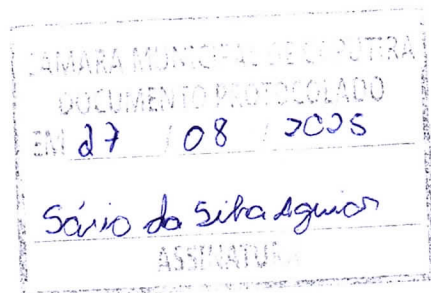 CÂMARA MUNICIPAL DE CAPUTIRA
DOCUMENTO PROTOCOLADO
EM 27 / 08 / 2025
Sávio da Silva Aguiar
ASSINATURA